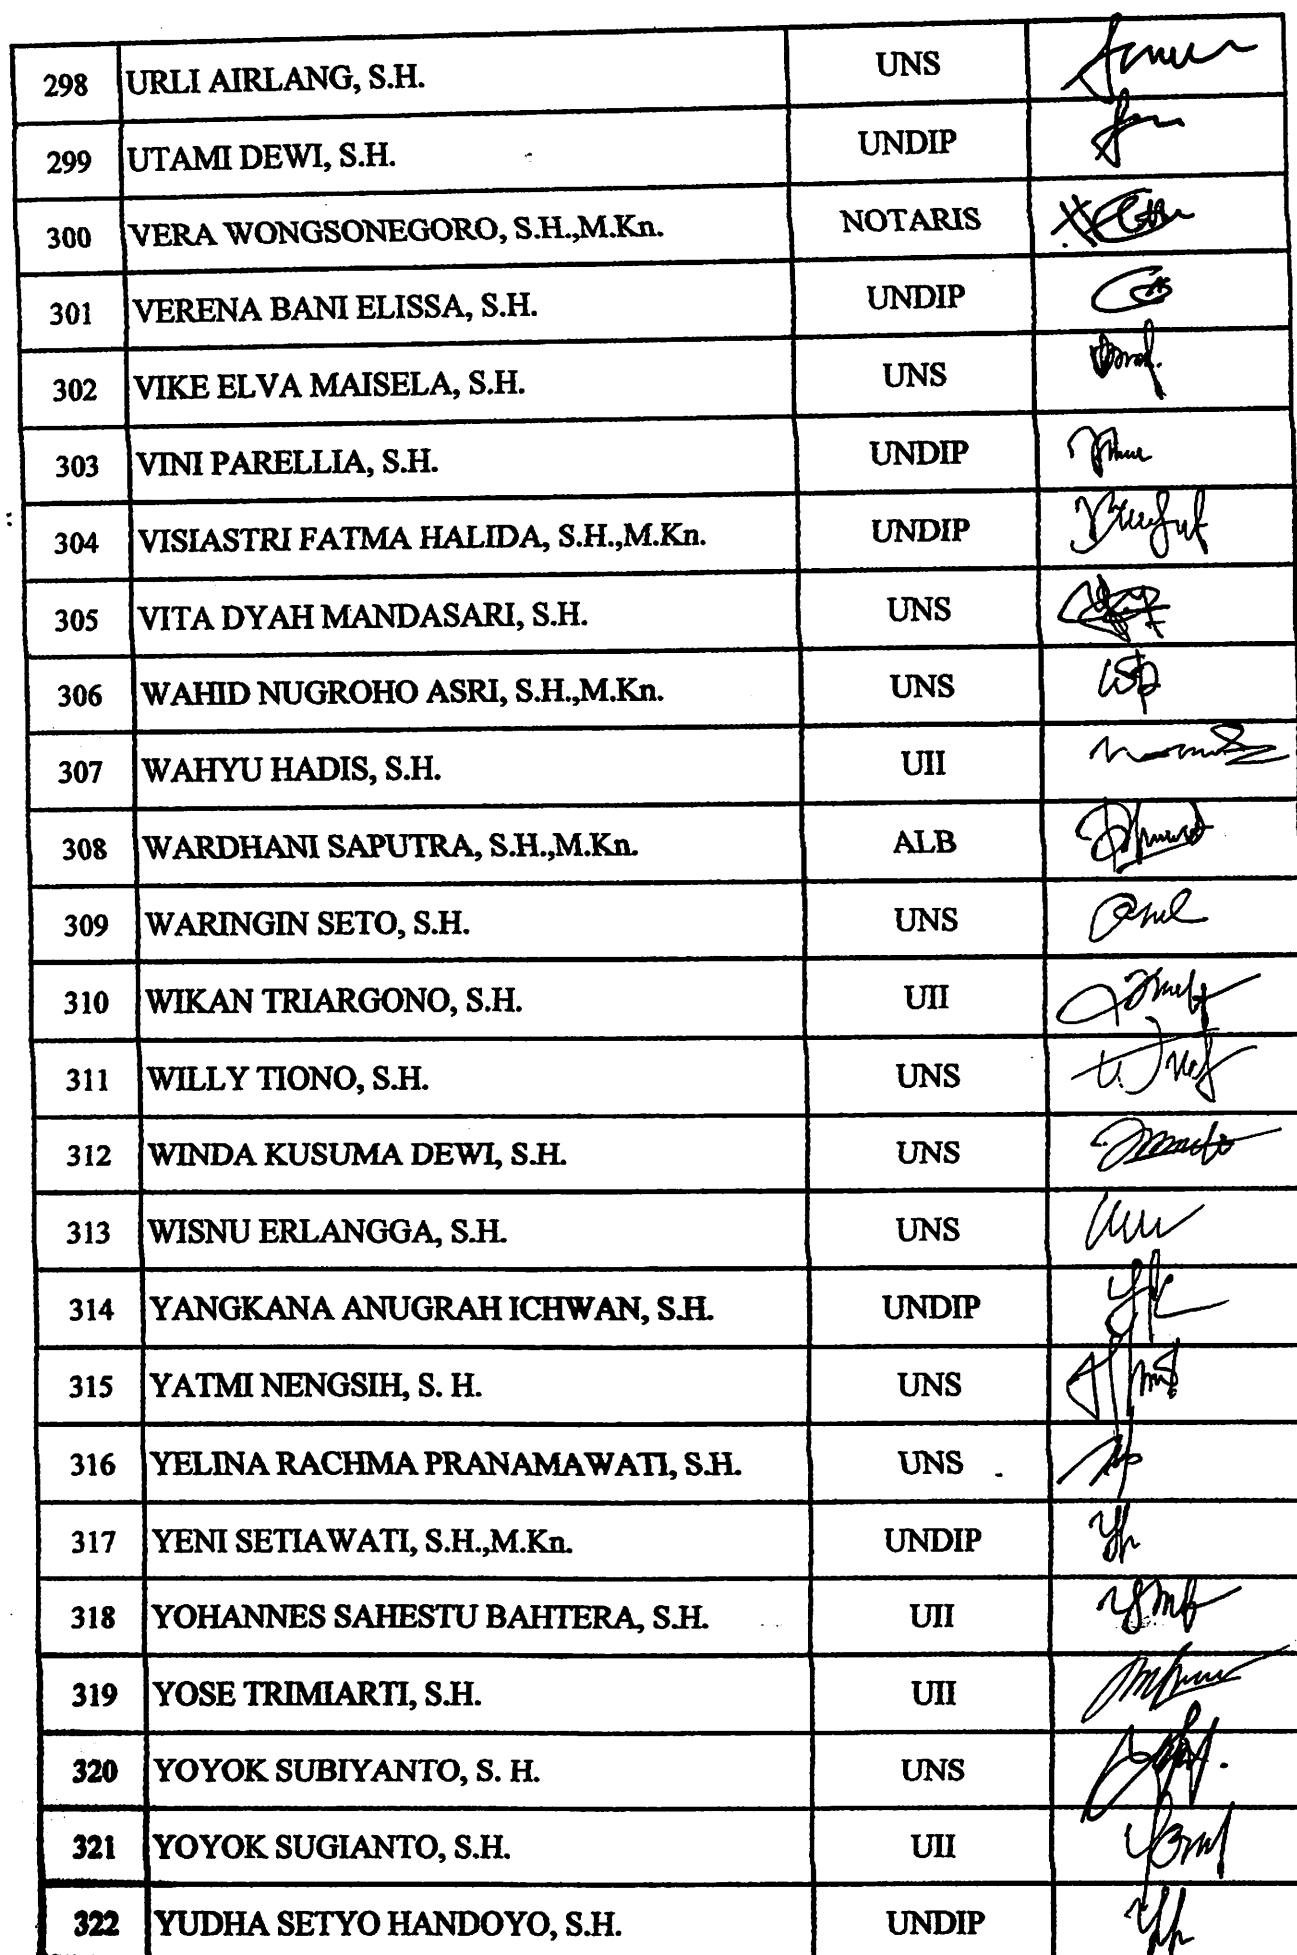 298 URLI AIRLANG, S.H. UNS
299 UTAMI DEWI, S.H. UNDIP
300 VERA WONGSONEGORO, S.H.,M.Kn. NOTARIS
301 VERENA BANI ELISSA, S.H. UNDIP
302 VIKE ELVA MAISELA, S.H. UNS
303 VINI PARELLIA, S.H. UNDIP
304 VISIASTRI FATMA HALIDA, S.H.,M.Kn. UNDIP
305 VITA DYAH MANDASARI, S.H. UNS
306 WAHID NUGROHO ASRI, S.H.,M.Kn. UNS
307 WAHYU HADIS, S.H. UII
308 WARDHANI SAPUTRA, S.H.,M.Kn. ALB
309 WARINGIN SETO, S.H. UNS
310 WIKAN TRIARGONO, S.H. UII
311 WILLY TIONO, S.H. UNS
312 WINDA KUSUMA DEWI, S.H. UNS
313 WISNU ERLANGGA, S.H. UNS
314 YANGKANA ANUGRAH ICHWAN, S.H. UNDIP
315 YATMI NENGSIH, S. H. UNS
316 YELINA RACHMA PRANAMAWATI, S.H. UNS
317 YENI SETIAWATI, S.H.,M.Kn. UNDIP
318 YOHANNES SAHESTU BAHTERA, S.H. UII
319 YOSE TRIMIARTI, S.H. UII
320 YOYOK SUBIYANTO, S. H. UNS
321 YOYOK SUGIANTO, S.H. UII
322 YUDHA SETYO HANDOYO, S.H. UNDIP